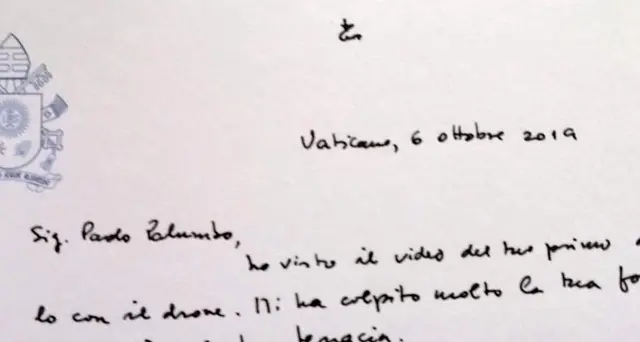 Vaticano, 6 ottobre 2019
Sig. Paolo Palumbo,
ho visto il video del tuo primo
lo con il drone. Mi ha colpito molto la tua
tenacia.